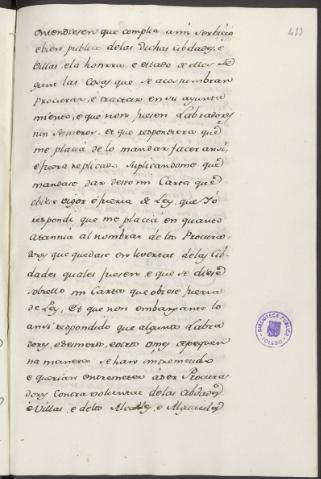 433
entendiesen que complia a mi servicio
e bien publico delas dichas cibdades, e
villas, e la honrra e estado de ellos se
gun las cosas que se acostumbran
procurar, e tractar en su ayunta
miento, e que non fuesen Labradores
nin sesmeros. et que respondiera que
me placia de lo mandar facer ansi,
e fuera replicado suplicandome que
mandase dar desto mi Carta que
obiese vigor e fuerza de Ley, que Yo
respondi que me placia en quanto
atannia al nombrar de los Procura
dores que quedase en livertad delas Cib
dades quales fuesen, e que se diese
sobrello mi Carta que obiese fuerza
de Ley, Et que non embargante lo
ansi respondido que algunos Labra
dores, e sesmeros, e otros omes de pequen
na manera se han entremetido
e querian entremeter a ser Procura
dores contra voluntad de las cibdades
e villas, e delos Alcaldes, e Alguaciles
BIBLIOTECA PUBLICA
TOLEDO